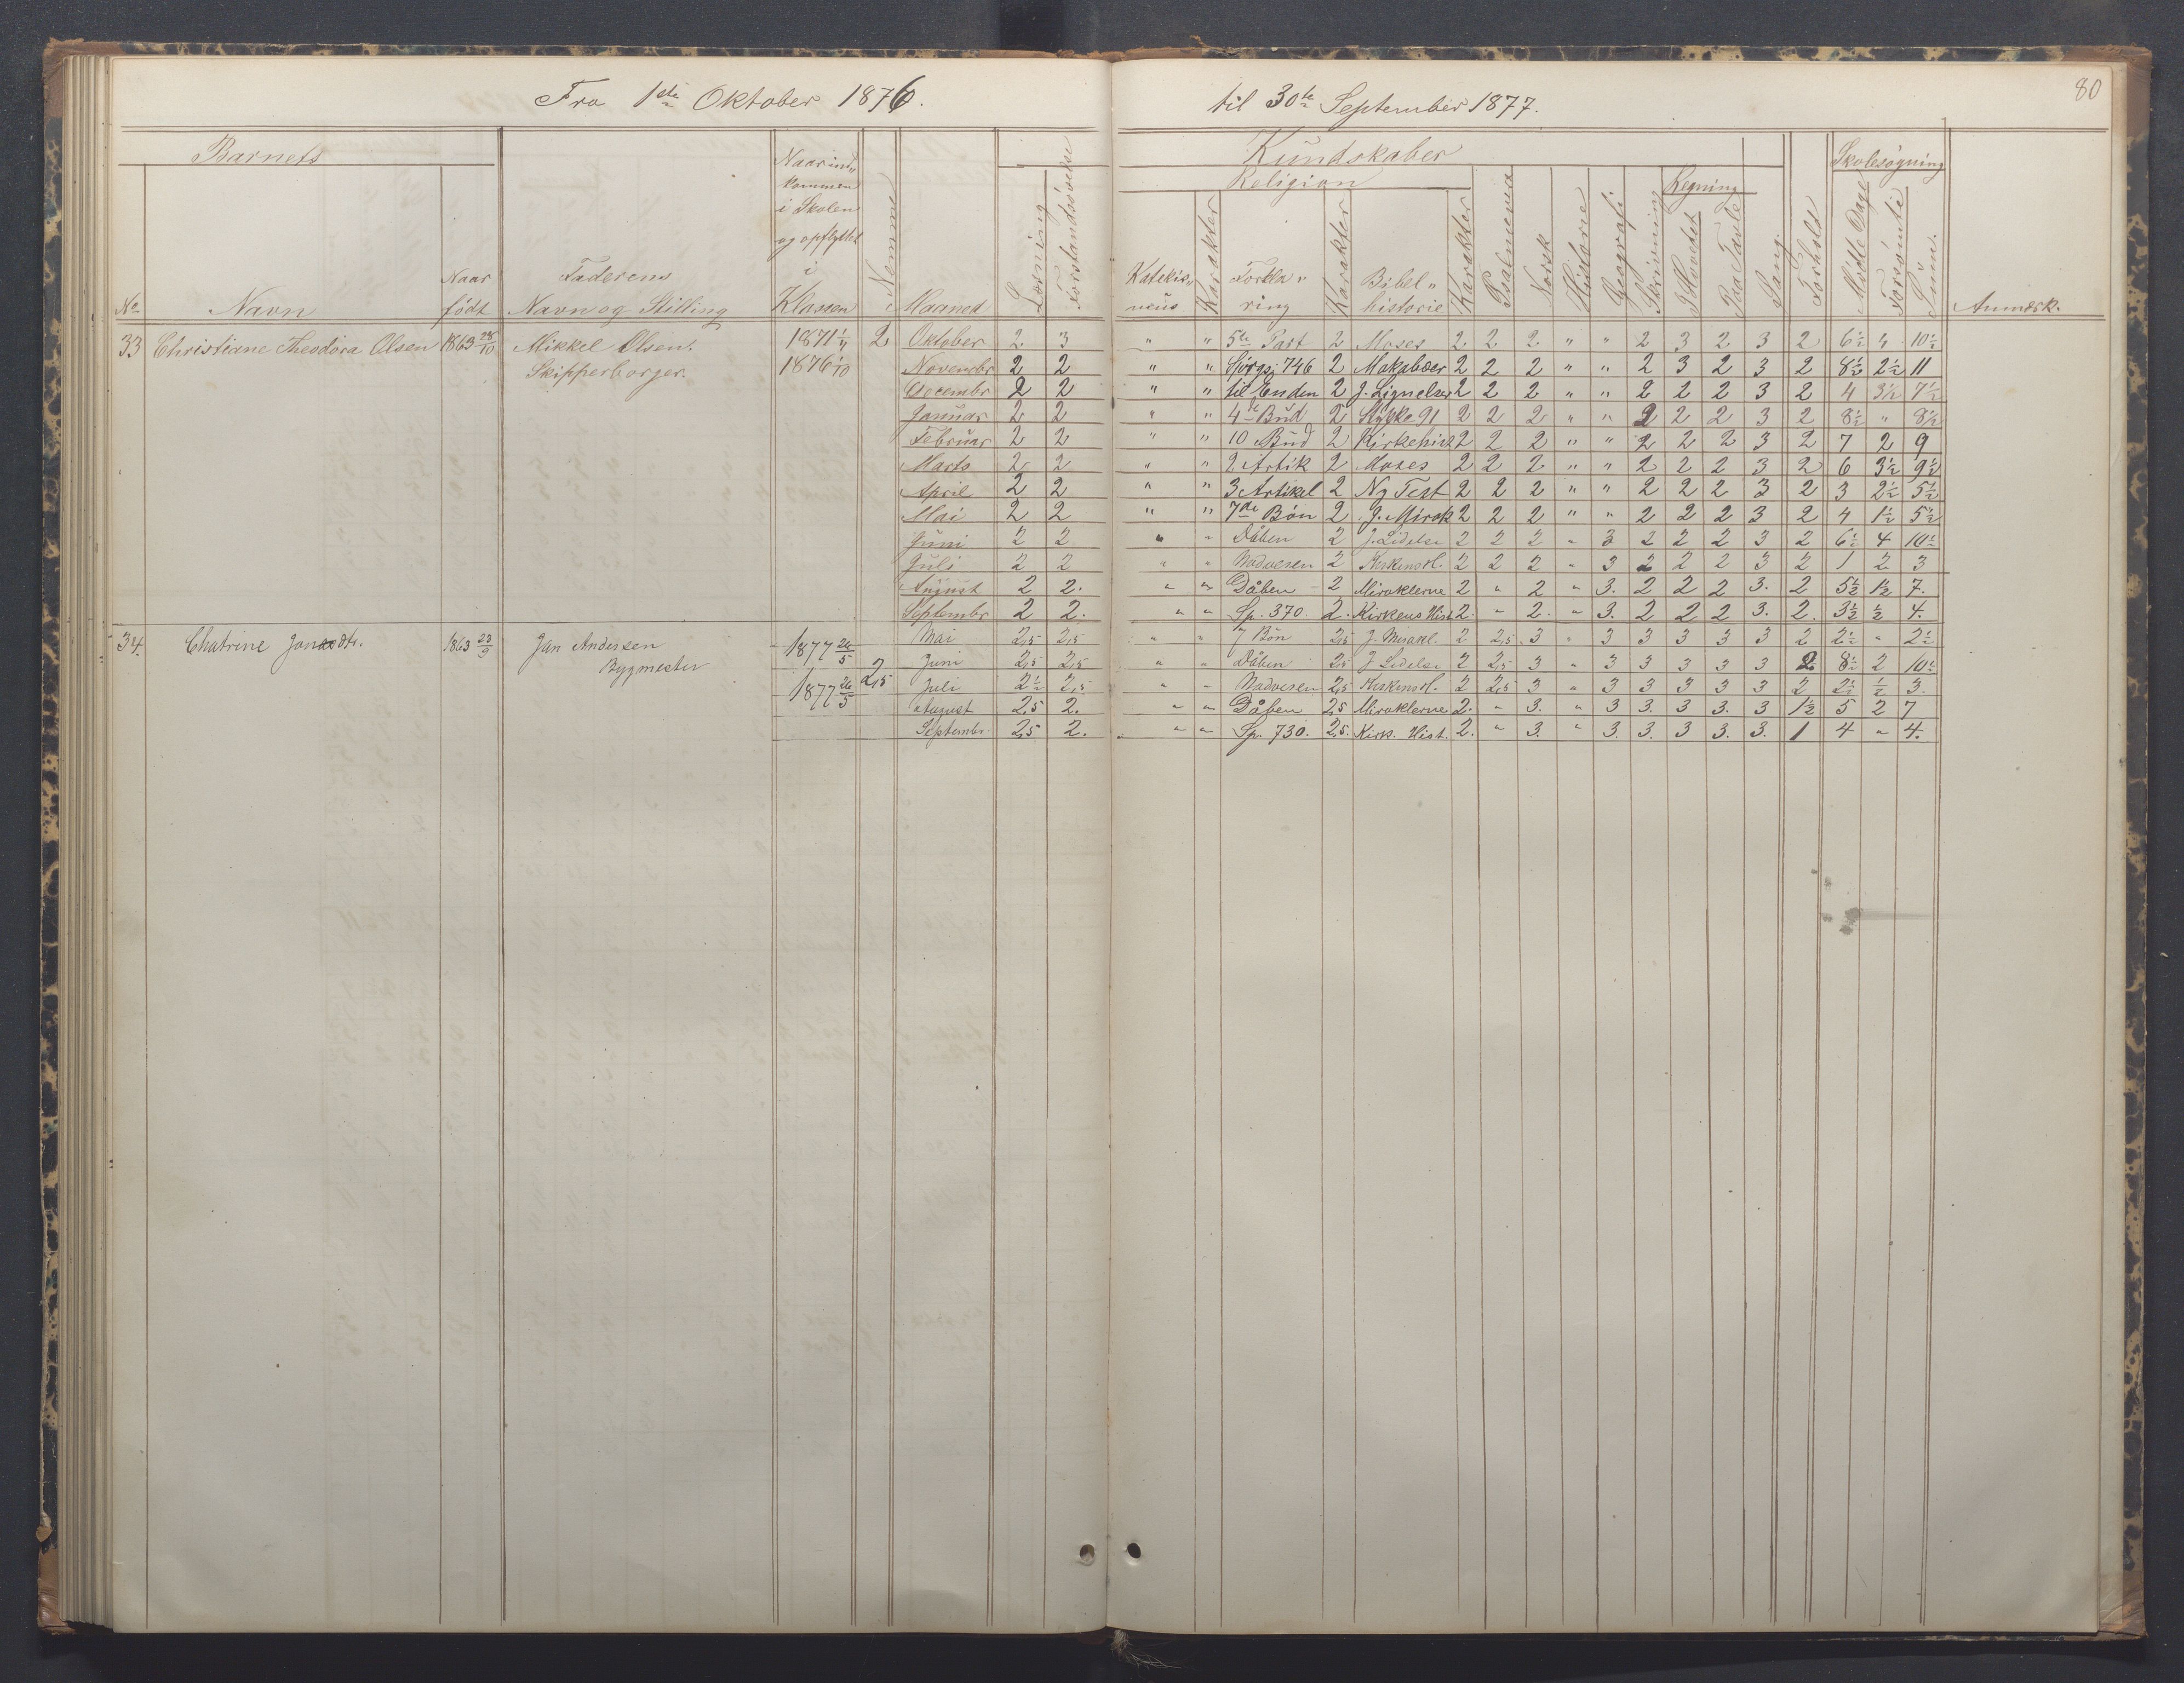 Fra 1ste Oktober 1876.
til 30te September 1877.
80
Barnets
No
Navn
Naar født
Faderens
Navn og Stilling
Naar ind„
kommen
i Skolen
og opflyttet
i
Klassen
Nemme
Maaned
Læsning
Forstandsøvelse
Kundskaber
Religion
Katekis„
mus
Karakter
Forkla„
ring
Karakter
Bibel„
historie
Karakter
Psalmevers
Norsk
Historie
Geografi
Skrivning
Regning
I Hovedet
Paa Tavle
Sang.
Forhold
Skolesøgning
Mødte Dage
Forsømte
Sum.
Anmærk.
33 Christiane Theodora Olsen 1863 28/10 Mikkel Olsen. 1871 1/4 2 Oktober 2 3 " " 5te Part 2 Moses 2 2 2 " " 2 3 2 3 2 6½ 4 10½
Skipperborger. 1876 1/10 Novembr 2 2 " " Spørgs. 746 2 Makabæer 2 2 2 " " 2 3 2 3 2 8½ 2½ 11
Decembr 2 2 " " til Enden 2 J. Lignelser 2 2 2 " " 2 2 2 3 2 4 3½ 7½
Januar 2 2 " " 4de Bud 2 Stykke 91 2 2 2 " " 2 2 2 3 2 8½ " 8½
Februar 2 2 " " 10 Bud 2 Kirkehist 2 2 2 " " 2 2 2 3 2 7 2 9
Marts 2 2 " " 2 Artik 2 Moses 2 2 2 " " 2 2 2 3 2 6 3½ 9½
April 2 2 " " 3 Artikel 2 Ny Test 2 2 2 " " 2 2 2 3 2 3 2½ 5½
Mai 2 2 " " 7de Bøn 2 J. Mirak 2 2 2 " " 2 2 2 3 2 4 1½ 5½
Juni 2 2 " " Dåben 2 J. Lidelse 2 2 2 " 3 2 2 2 3 2 6½ 4 10½
Juli 2 2 " " Nadveren 2 Kirkens H. 2 2 2 " 3 2 2 2 3 2 1 2 3
August 2 2. " " Dåben - 2 Miraklerne 2 " 2 " 3. 2 2 2 3. 2 5½ 1½ 7.
Septembr 2 2. " " Sp. 370. 2. Kirkens Hist 2. " 2. " 3. 2 2 2 3. 2. 3½ ½ 4.
34. Chatrine Jansdtr. 1863 23/9 Jan Andersen 1877 26/5 Mai 2,5 2,5 " " 7 Bøn 2,5 J. Mirakl. 2 2,5 3 " 3 3 3 3 3 2 2½ " 2½
Bygmester 2,5 Juni 2,5 2,5 " " Dåben 2,5 J Lidelse 2 2,5 3 " 3 3 3 3 3 2 8½ 2 10½
1877 26/5 Juli 2½ 2,5 " " Nadveren 2,5 Kirkens H. 2 2,5 3 " 3 3 3 3 3 2 2½ ½ 3.
August 2,5 2. " " Dåben 2,5 Miraklerne 2. " 3. " 3 3. 3 3. 3 1½ 5 2 7
Septembr. 2,5 2. " " Sp. 730. 2,5. Kirk. Hist. 2. " 3. " 3. 3. 3 3. 3. 1 4 " 4.